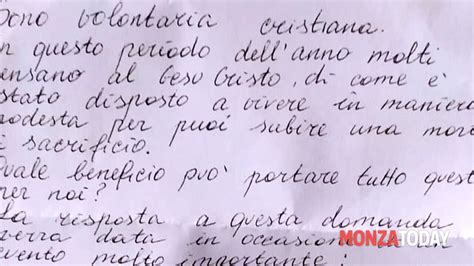 Sono volontaria cristiana.
In questo periodo dell'anno molti
pensano al Gesù Cristo, di come è
stato disposto a vivere in maniera
modesta per puoi subire una mor
i sacrificio.
Quale beneficio può portare tutto quest
per noi?
La risposta a questa domanda
verrà data in occasione di un
evento molto importante:
MONZATODAY